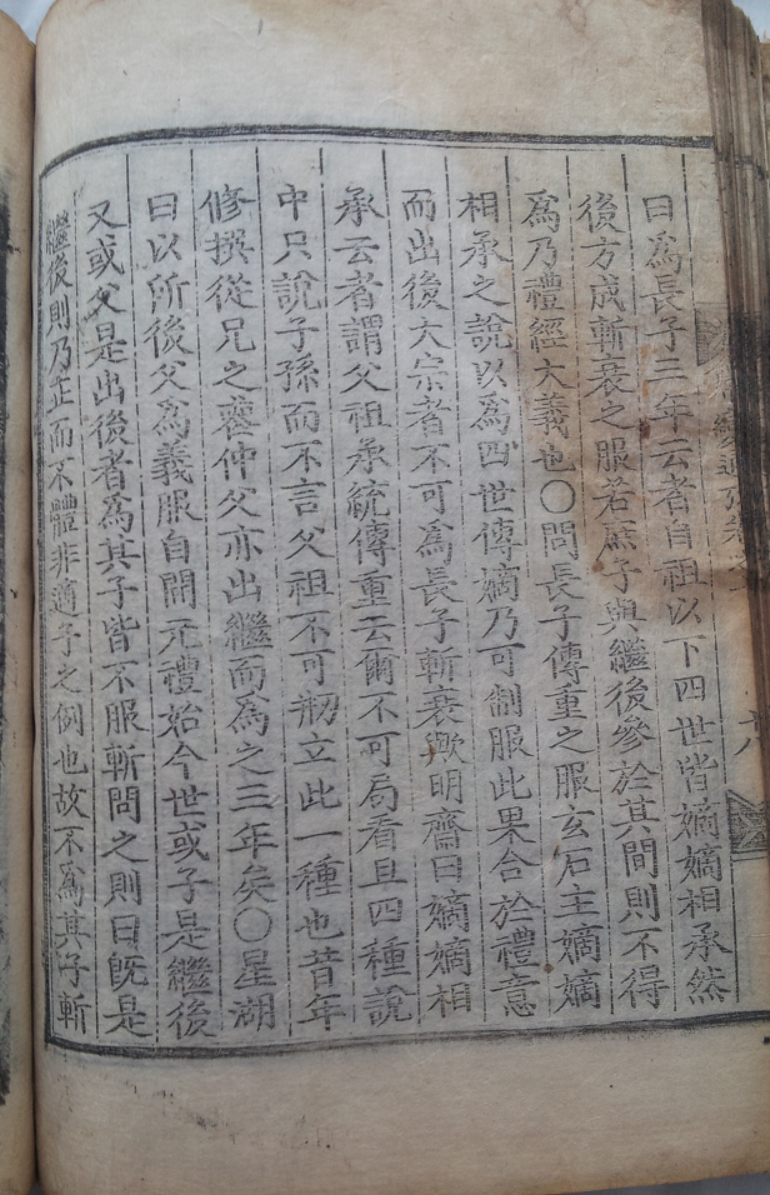 曰爲長子三年云者自祖以下四世皆嫡嫡相承然
後方成斬衰之服若庶子與繼後參於其間則不得
爲乃禮經大義也○問長子傳重之服玄石主嫡嫡
相承之說以爲四世傳嫡乃可制服此果合於禮意
而出後大宗者不可爲長子斬衰歟明齋曰嫡嫡相
承云者謂父祖承統傳重云爾不可局看且四種說
中只說子孫而不言父祖不可刱立此一種也昔年
修撰從兄之喪仲父亦出繼而爲之三年矣○星湖
曰以所後父爲義服自開元禮始今世或子是繼後
又或父是出後者爲其子皆不服斬問之則曰旣是
繼後則乃正而不體非適子之例也故不爲其子斬